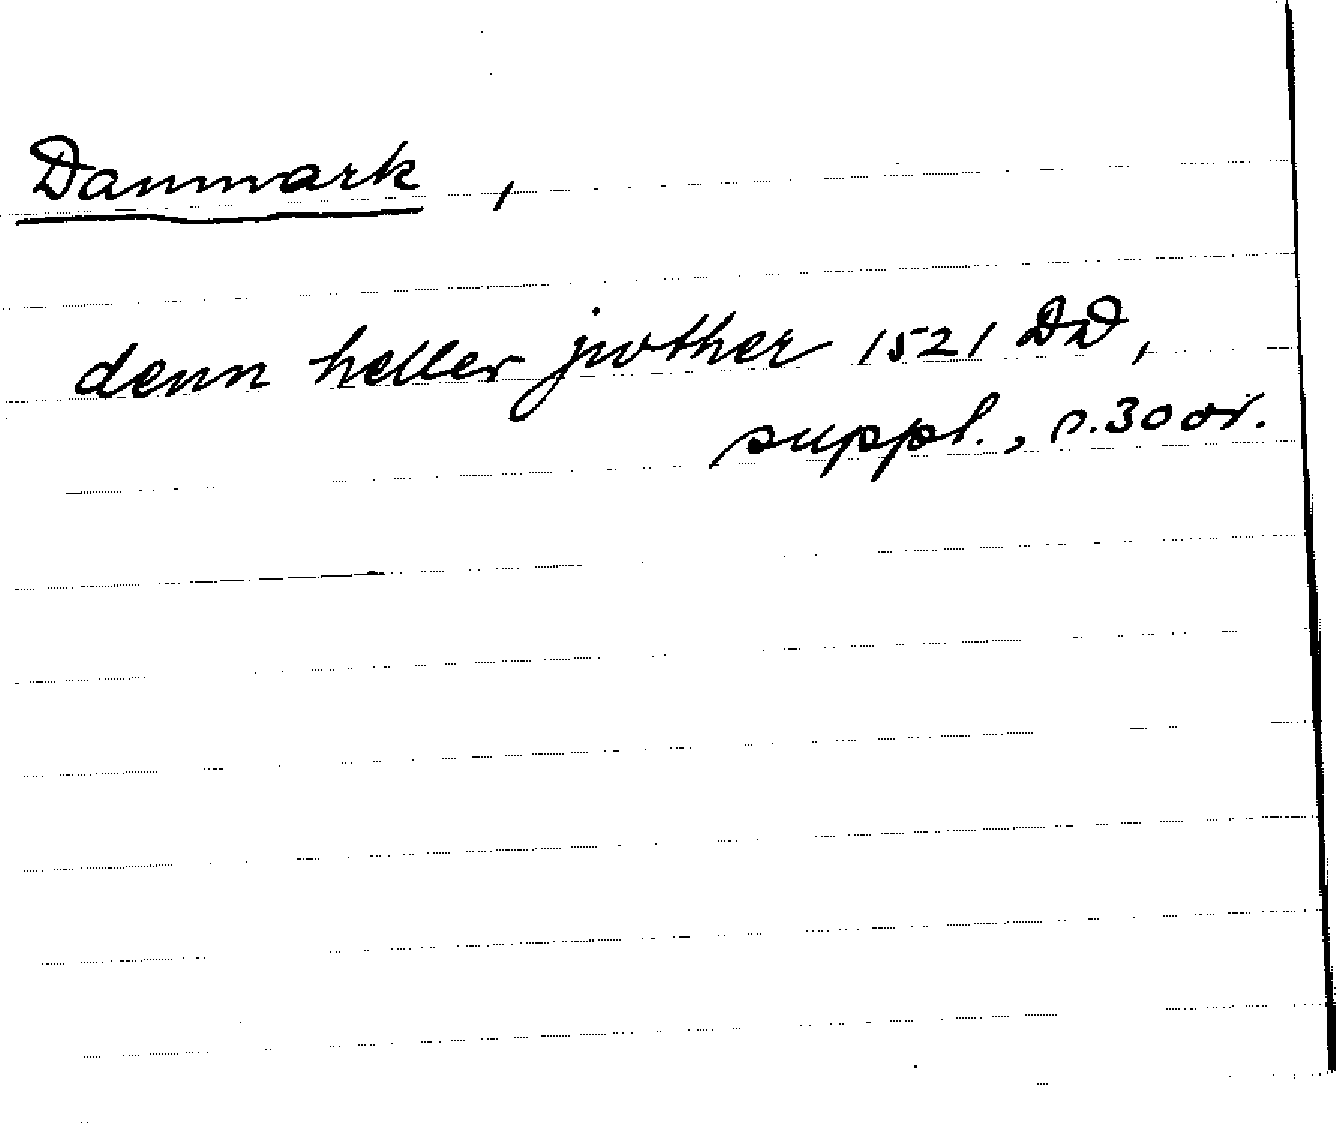 Danmark ,
denn heller jwther 1521 DD,
suppl., s. 30 ör.